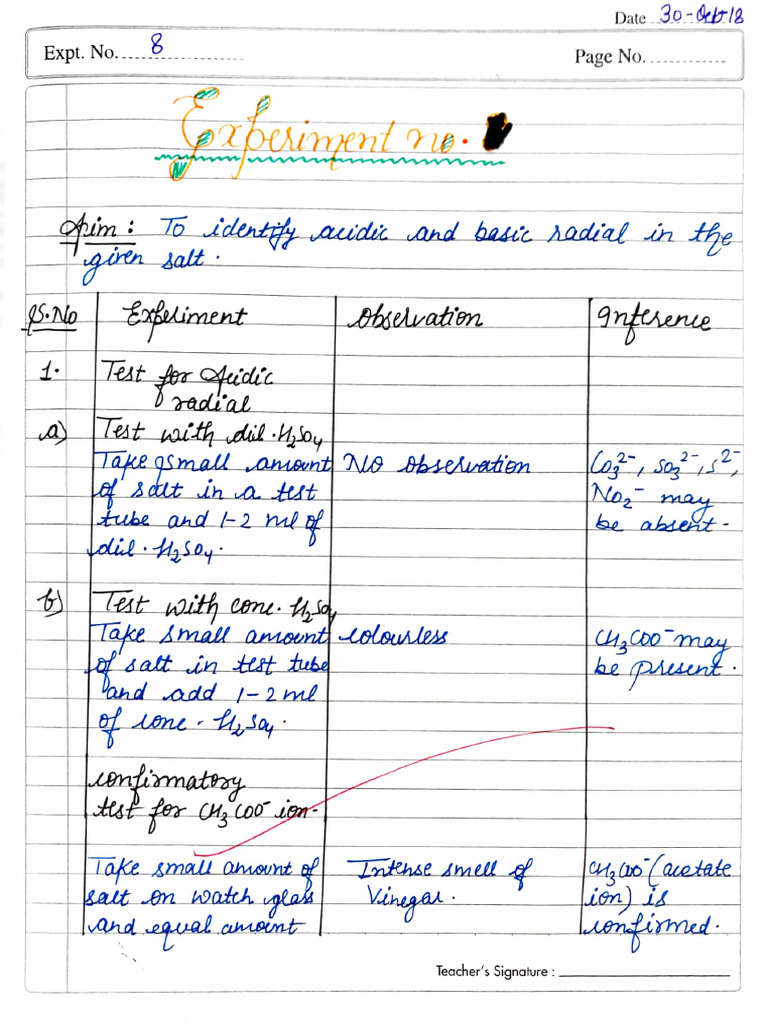 Date 30-Oct-18
Expt. No. 8
Page No.
Experiment no.
Aim: To identify acidic and basic radial in the
given salt.
S.No Experiment Observation Inference
1. Test for Acidic
radial
a) Test with dil. H2SO4
Take small amount No observation CO3²⁻, SO3²⁻, S²⁻,
of salt in a test NO2⁻ may
tube and 1-2 ml of be absent-
dil. H2SO4.
b) Test with conc. H2SO4
Take small amount colourless CH3COO⁻ may
of salt in test tube be present.
and add 1-2 ml
of conc. H2SO4.
confirmatory
test for CH3COO⁻ ion-
Take small amount of Intense smell of CH3COO⁻ (acetate
salt on watch glass Vinegar. ion) is
and equal amount confirmed.
Teacher's Signature :